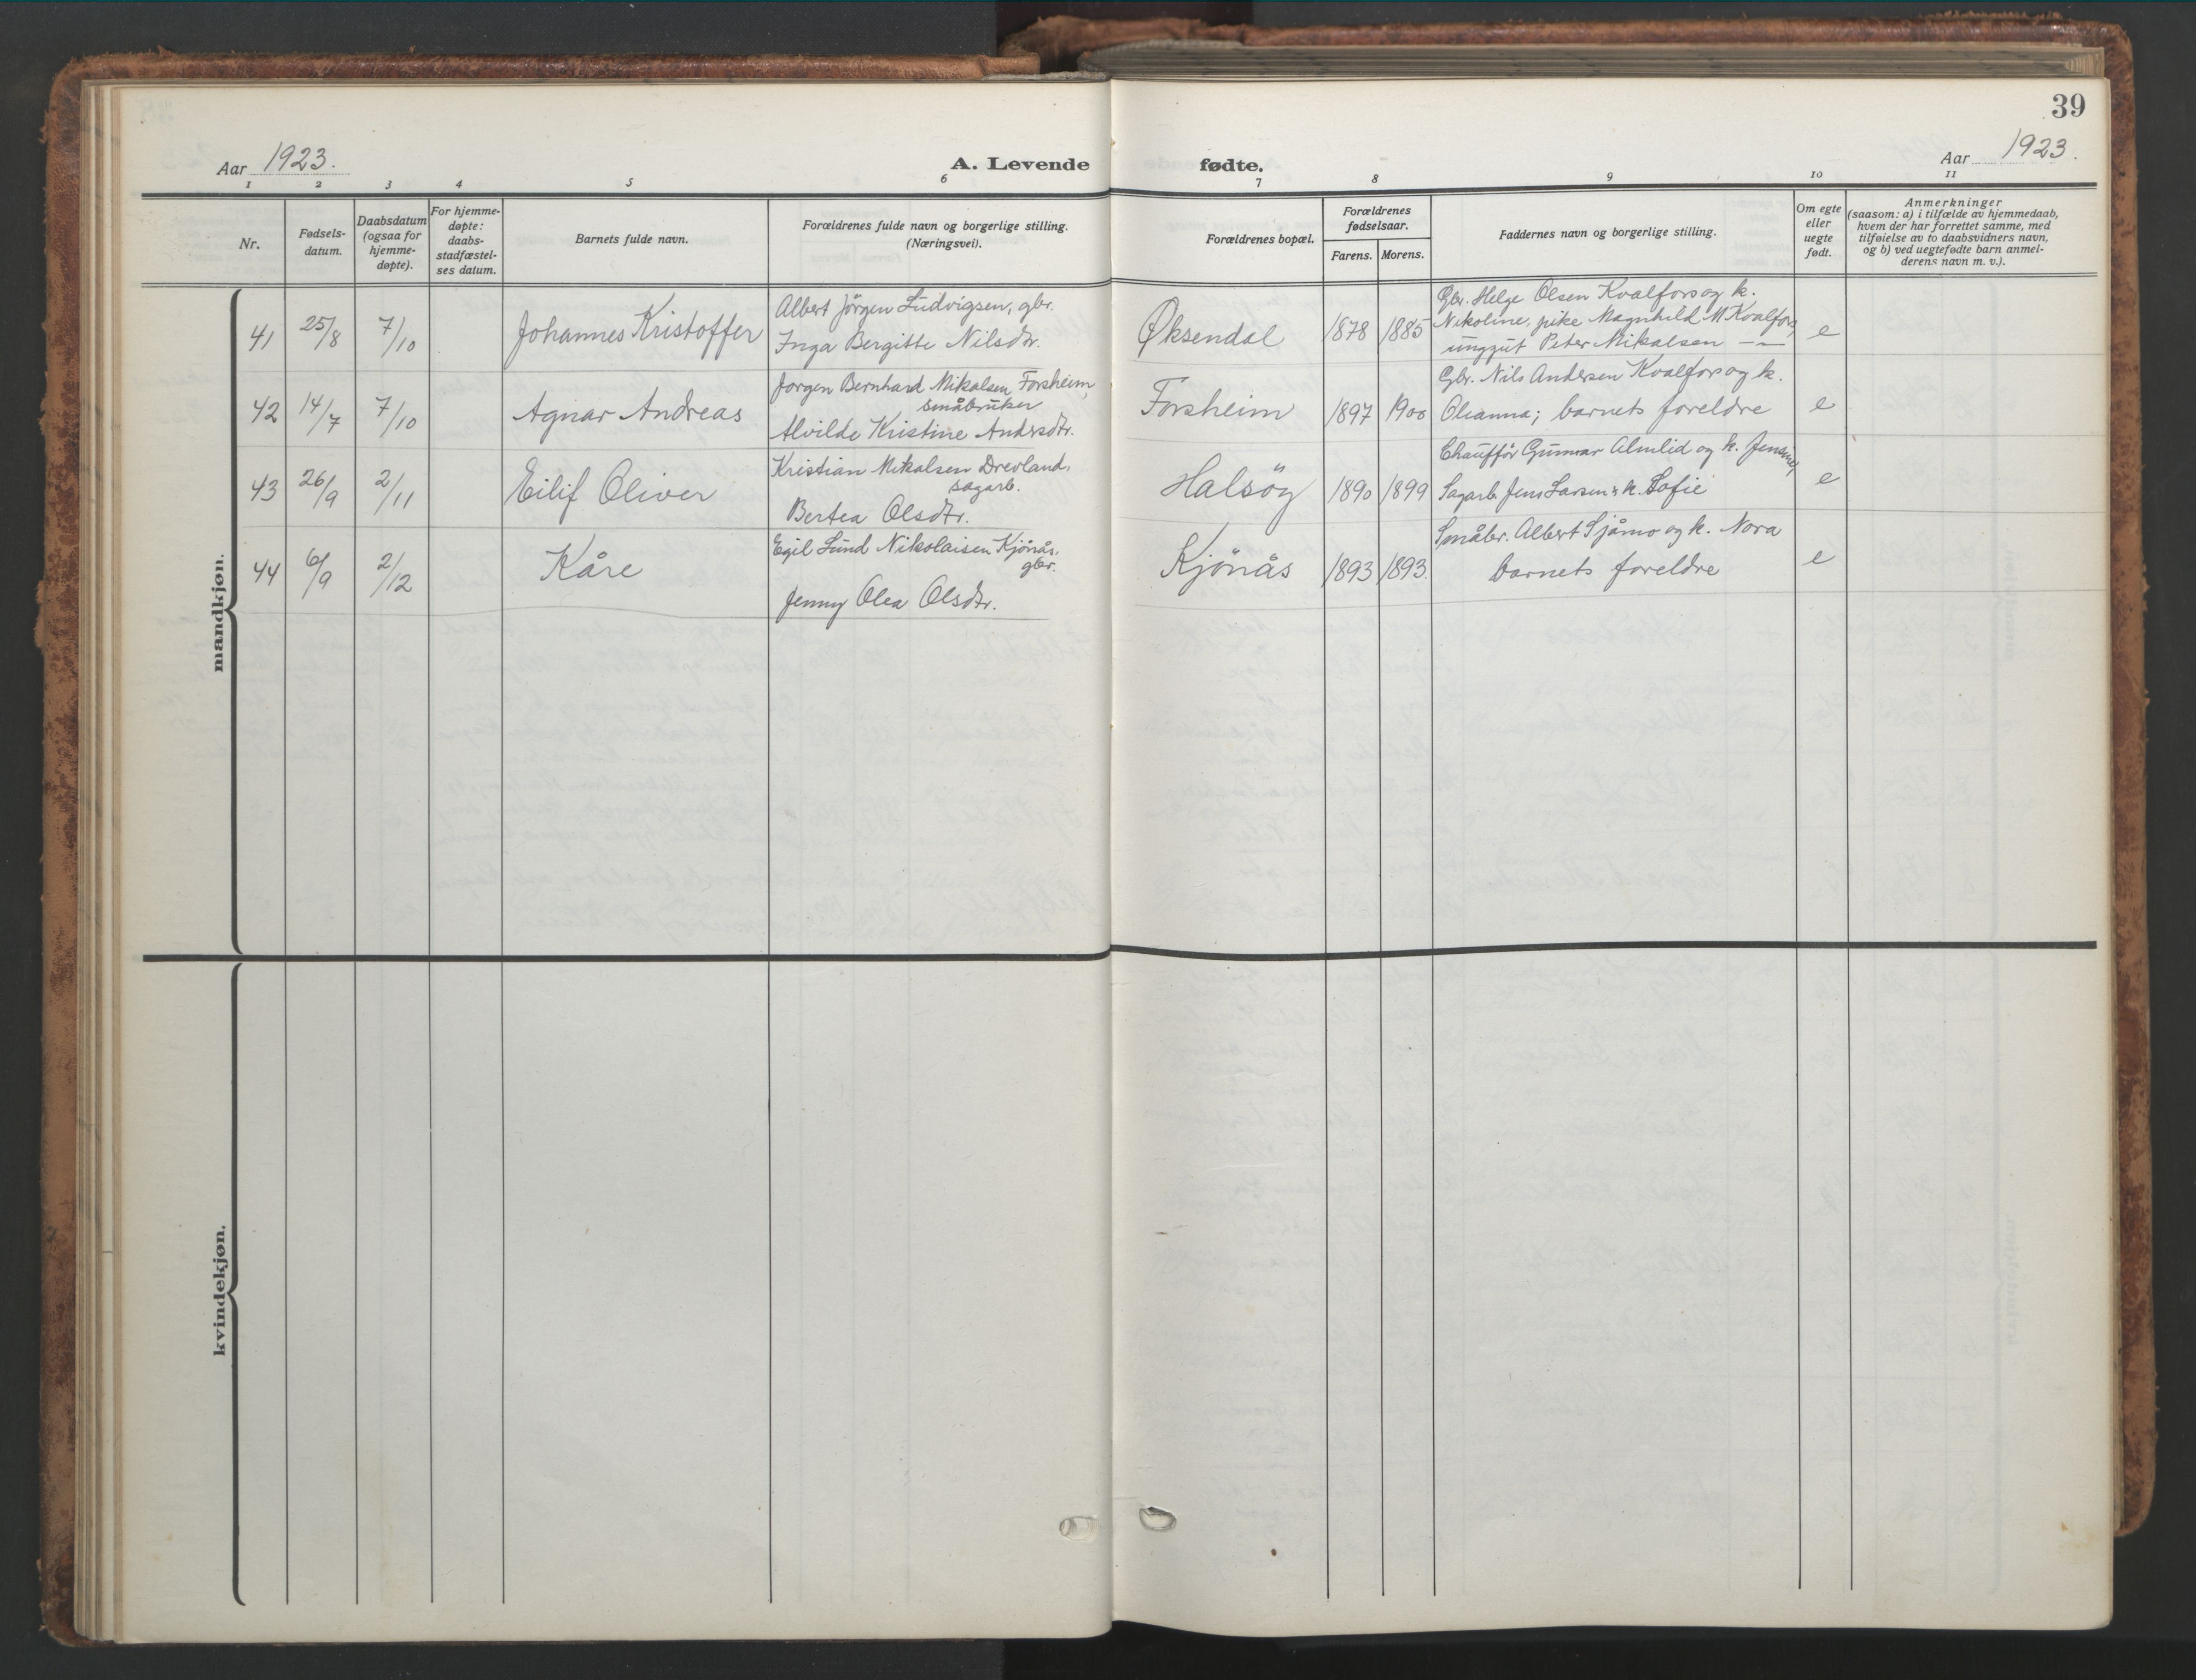 39
Aar 1923.
A. Levende fødte.
Aar 1923.
1 2 3 4 5 6 7 8 9 10 11
Nr.
Fødsels-
datum.
Daabsdatum
(ogsaa for
hjemme-
døpte).
For hjemme-
døpte:
daabs-
stadfæstel-
ses datum.
Barnets fulde navn.
Forældrenes fulde navn og borgerlige stilling.
(Næringsvei).
Forældrenes bopæl.
Forældrenes
fødselsaar.
Farens. Morens.
Faddernes navn og borgerlige stilling.
Om egte
eller
uegte
født.
Anmerkninger
(saasom: a) i tilfælde av hjemmedaab,
hvem der har forrettet samme, med
tilføielse av to daabsvidners navn,
og b) ved uegtefødte barn anmel-
derens navn m. v.).
mandkjøn.
41 25/8 7/10 Johannes Kristoffer
Albert Jörgen Ludvigsen, gbr.
Inga Bergitte Nilsdtr.
Øksendal 1878 1885
Gbr. Helge Olsen Kvalfors og k.
Nikoline, pike Magnhild M Kvalfors,
unggut Peter Mikalsen — —
e
42 14/7 7/10 Agnar Andreas
Jorgen Bernhard Mikalsen Forsheim,
småbruker
Alvilde Kristine Andrsdtr.
Forsheim 1897 1900
Gbr. Nils Andersen Kvalfors og k.
Oleanna; barnets foreldre
e
43 26/9 2/11 Eilif Oliver
Kristian Mikalsen Drevland,
sagarb.
Bertea Olsdtr.
Halsöy 1890 1899
Chauffför Gunnar Almlid og k. Jensine,
Sagarb. Jens Larsen & k. Sofie
e
44 6/9 2/12 Kåre
Egil Lund Nikolaisen Kjönås,
gbr.
Jenny Olea Olsdtr.
Kjönås 1893 1893.
Småbr. Albert Sjåmo og k. Nora
barnets foreldre
e
kvindekjøn.